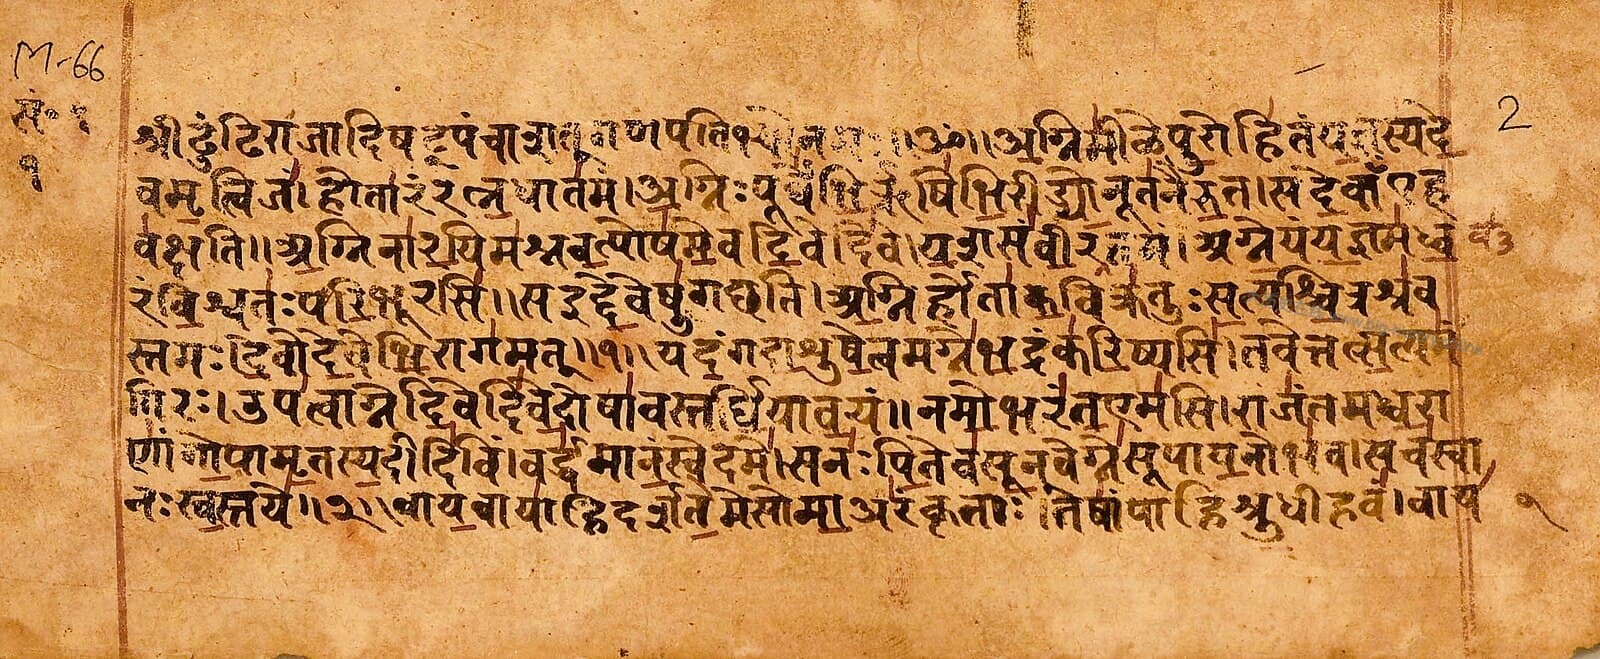 M-66
सं॰ १
१
2
श्रीढुंटिराजादिषट्पंचाशत् गणपतिभ्योनमः॥ॐ॥अग्निमीळेपुरोहितंयज्ञस्यदे
वमृत्विजं।होतारंरत्नधातमं।अग्निःपूर्वेभिर्ऋषिभिरीड्योनूतनैरुत।सदेवाँएह
वक्षति॥अग्निनारयिमश्नवत्पोषमेवदिवेदिवे।यशसंवीरवत्तमं।अग्नेयंयज्ञमध्व
रंविश्वतःपरिभूरसि॥सइद्देवेषुगछति।अग्निर्होताकविक्रतुःसत्यश्चित्रश्रव
स्तमः।देवोदेवेभिरागमत्॥१॥यदंगदाशुषेत्वमग्नेभद्रंकरिष्यसि।तवेत्तत्सत्यमं
गिरः।उपत्वाग्नेदिवेदिवेदोषावस्तर्धियावयं॥नमोभरंतएमसि।राजंतमध्वरा
णांगोपामृतस्यदीदिविं।वर्द्धमानंस्वेदमे।सनःपितेवसूनवेग्नेसूपायनोभव।सचस्वा
नःस्वस्तये॥२॥वायवायाहिदर्शतेमेसोमाअरंकृताः।तेषांपाहिश्रुधीहवं।वाय